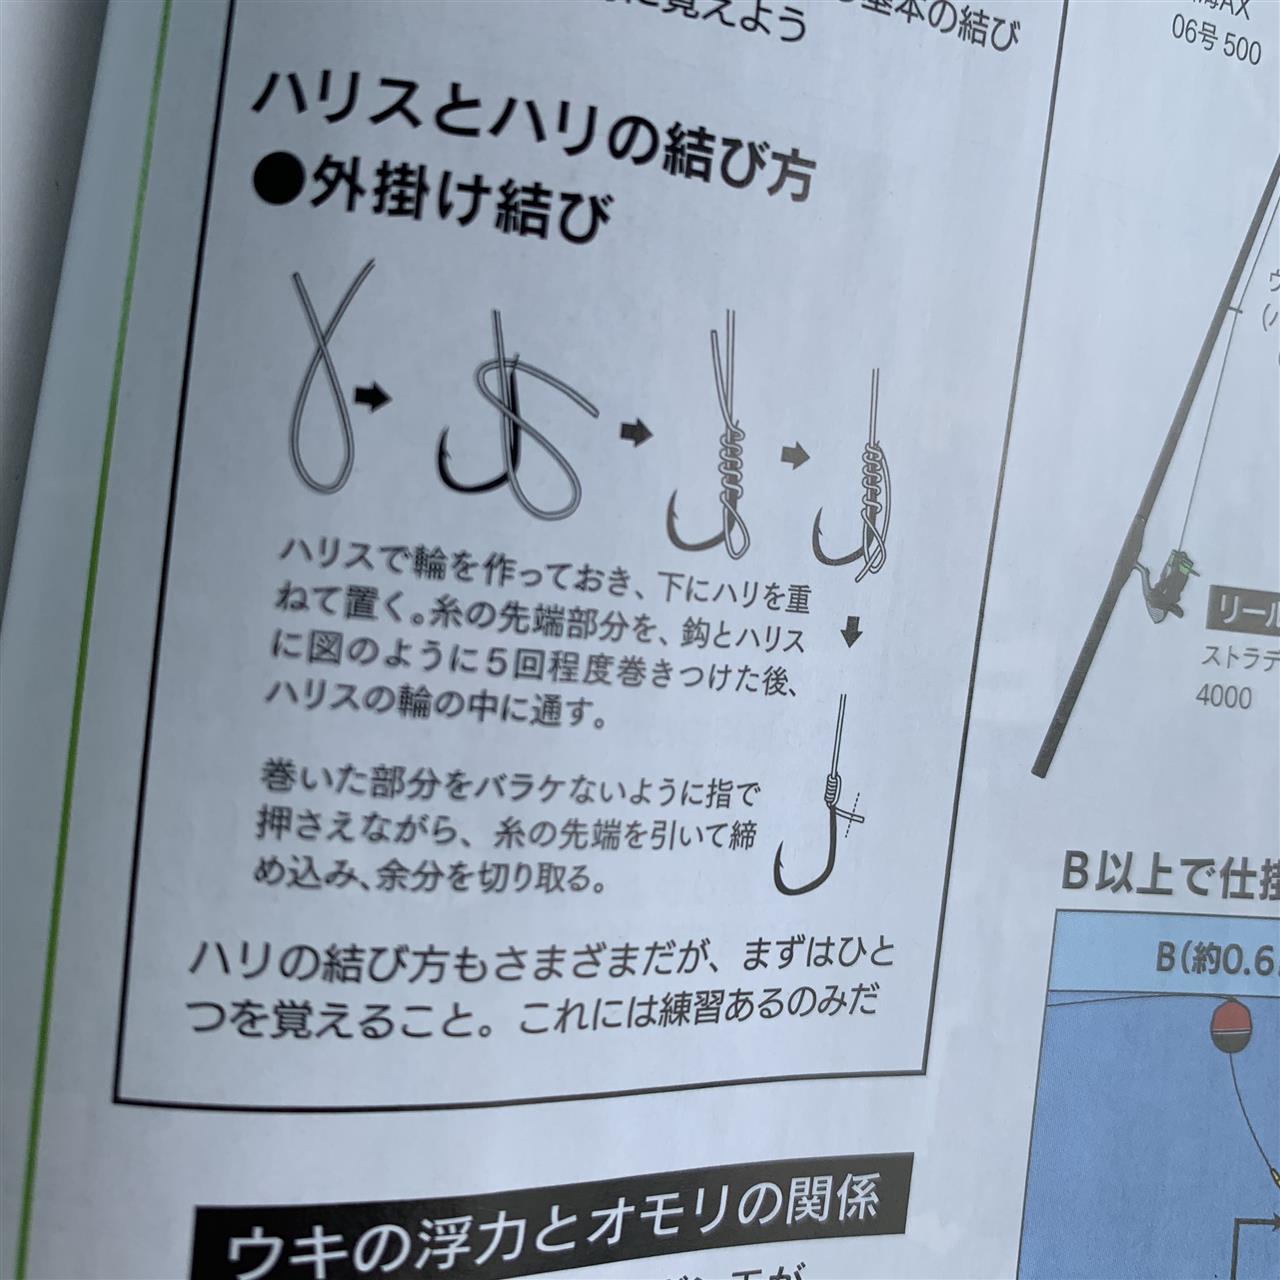 に覚えよう
基本の結び
ハリスとハリの結び方
●外掛け結び
ハリスで輪を作っておき、下にハリを重
ねて置く。糸の先端部分を、鈎とハリス
に図のように5回程度巻きつけた後、
ハリスの輪の中に通す。
巻いた部分をバラケないように指で
押さえながら、糸の先端を引いて締
め込み、余分を切り取る。
ハリの結び方もさまざまだが、まずはひと
つを覚えること。これには練習あるのみだ
ウキの浮力とオモリの関係
AX
06号 500
リール
ストラデ
4000
B以上で仕掛
B(約0.6